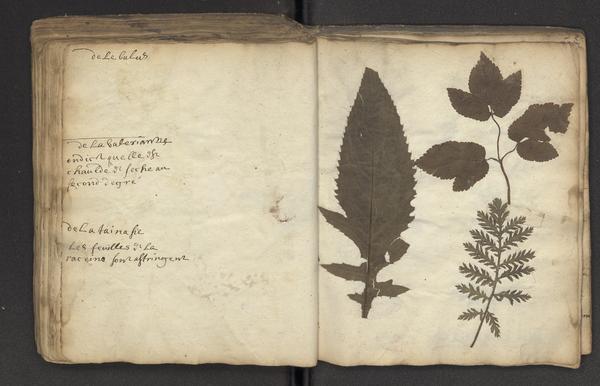 de Lebulus
de La Valerianne
on dict quelle est
chaulde & seche au
second degré
de La tainasie
Les feuilles & La
raccine sont astringent